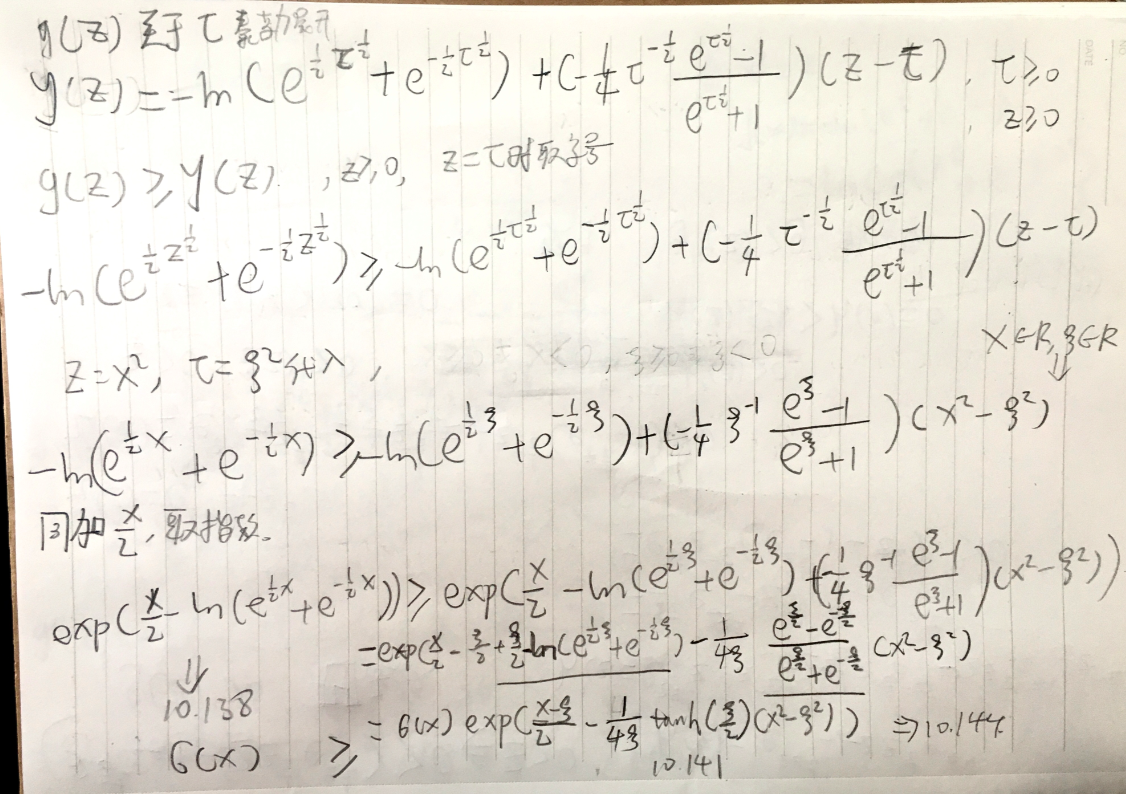 g(z) 关于 τ 泰勒展开
y(z) = -ln(e^{\frac{1}{2}τ^{\frac{1}{2}}} + e^{-\frac{1}{2}τ^{\frac{1}{2}}}) + (-\frac{1}{4}τ^{-\frac{1}{2}} \frac{e^{τ^{\frac{1}{2}}}-1}{e^{τ^{\frac{1}{2}}}+1})(z-τ), τ≥0
z≥0
g(z) ≥ y(z), z≥0, z=τ时取等号
-ln(e^{\frac{1}{2}z^{\frac{1}{2}}} + e^{-\frac{1}{2}z^{\frac{1}{2}}}) ≥ -ln(e^{\frac{1}{2}τ^{\frac{1}{2}}} + e^{-\frac{1}{2}τ^{\frac{1}{2}}}) + (-\frac{1}{4}τ^{-\frac{1}{2}} \frac{e^{τ^{\frac{1}{2}}}-1}{e^{τ^{\frac{1}{2}}}+1})(z-τ)
z=x², τ=ξ²代入,
x∈R, ξ∈R
⇓
-ln(e^{\frac{1}{2}x} + e^{-\frac{1}{2}x}) ≥ -ln(e^{\frac{1}{2}ξ} + e^{-\frac{1}{2}ξ}) + (-\frac{1}{4}ξ^{-1} \frac{e^{ξ}-1}{e^{ξ}+1})(x²-ξ²)
同加\frac{x}{2}, 取指数.
exp(\frac{x}{2} - ln(e^{\frac{1}{2}x} + e^{-\frac{1}{2}x})) ≥ exp(\frac{x}{2} - ln(e^{\frac{1}{2}ξ} + e^{-\frac{1}{2}ξ}) + (-\frac{1}{4}ξ^{-1} \frac{e^{ξ}-1}{e^{ξ}+1})(x²-ξ²))
= exp(\frac{x}{2} - \frac{ξ}{2} + \frac{ξ}{2} - ln(e^{\frac{1}{2}ξ} + e^{-\frac{1}{2}ξ}) - \frac{1}{4ξ} \frac{e^{\frac{ξ}{2}} - e^{-\frac{ξ}{2}}}{e^{\frac{ξ}{2}} + e^{-\frac{ξ}{2}}} (x²-ξ²)
⇓
10.138
= σ(x) exp(\frac{x-ξ}{2} - \frac{1}{4ξ} tanh(\frac{ξ}{2})(x²-ξ²)) ⇒ 10.144
σ(x) ≥
10.141